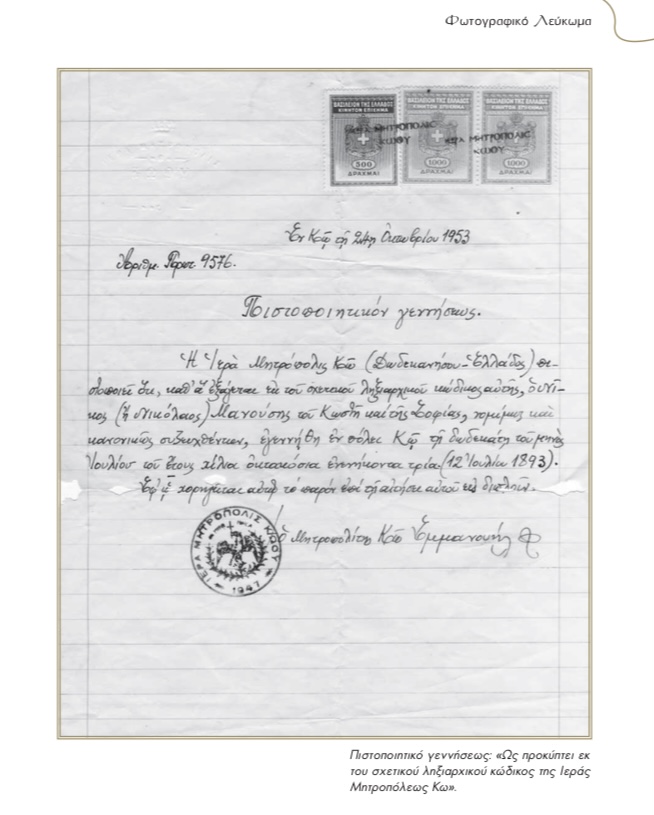 Φωτογραφικό Λεύκωμα
ΒΑΣΙΛΕΙΟΝ ΤΗΣ ΕΛΛΑΔΟΣ
ΚΙΝΗΤΟΝ ΕΠΙΣΗΜΑ
500
ΔΡΑΧΜΑΙ
ΒΑΣΙΛΕΙΟΝ ΤΗΣ ΕΛΛΑΔΟΣ
ΚΙΝΗΤΟΝ ΕΠΙΣΗΜΑ
1000
ΔΡΑΧΜΑΙ
ΒΑΣΙΛΕΙΟΝ ΤΗΣ ΕΛΛΑΔΟΣ
ΚΙΝΗΤΟΝ ΕΠΙΣΗΜΑ
1000
ΔΡΑΧΜΑΙ
ΙΕΡΑ ΜΗΤΡΟΠΟΛΙΣ
ΚΩΟΥ
ΙΕΡΑ ΜΗΤΡΟΠΟΛΙΣ
ΚΩΟΥ
Ἐν Κῷ τῇ 24ῃ Ὀκτωβρίου 1953
Ἀριθμ. Πρωτ. 9576.
Πιστοποιητικόν γεννήσεως.
Ἡ Ἱερὰ Μητρόπολις Κῶ (Δωδεκανήσου-Ἑλλάδος) πι-
στοποιεῖ ὅτι, καθ' ἃ ἐξάγεται ἐκ τοῦ σχετικοῦ ληξιαρχικοῦ κώδικος αὐτῆς, ὁ Νῖ-
κος (ἢ Νικόλαος) Μανούσης τοῦ Κωστῆ καὶ τῆς Σοφίας, νομίμως καὶ
κανονικῶς συζευχθέντων, ἐγεννήθη ἐν πόλει Κῷ τῇ δωδεκάτῃ τοῦ μηνὸς
Ἰουλίου τοῦ ἔτους χίλια ὀκτακόσια ἐννενήκοντα τρία (12 Ἰουλίου 1893).
Ἐφ' ᾧ χορηγεῖται αὐτῷ τὸ παρὸν ἐπὶ τῇ αἰτήσει αὐτοῦ εἰς διπλοῦν.
Ὁ Μητροπολίτης Κῶ Ἐμμανουήλ
ΙΕΡΑ ΜΗΤΡΟΠΟΛΙΣ ΚΩΟΥ
1947
Πιστοποιητικό γεννήσεως: «Ως προκύπτει εκ
του σχετικού ληξιαρχικού κώδικος της Ιεράς
Μητροπόλεως Κω».